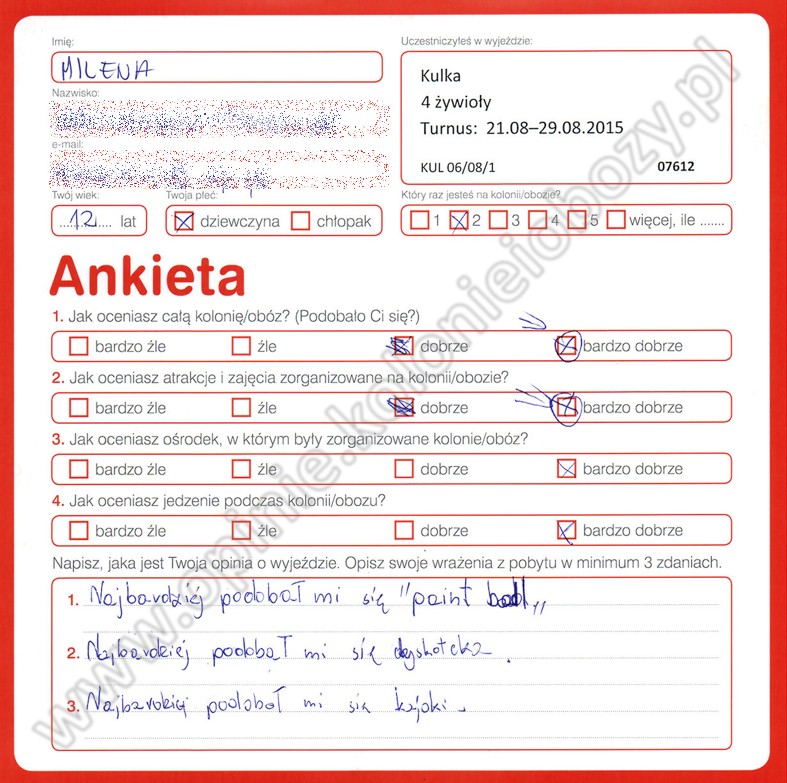 Imię:
MILENA
Nazwisko:
e-mail:
Twój wiek:
12 lat
Twoja płeć:
dziewczyna chłopak
Uczestniczyłeś w wyjeździe:
Kulka
4 żywioły
Turnus: 21.08–29.08.2015
KUL 06/08/1 07612
Który raz jesteś na kolonii/obozie?
1 2 3 4 5 więcej, ile .......
Ankieta
1. Jak oceniasz całą kolonię/obóz? (Podobało Ci się?)
bardzo źle źle dobrze bardzo dobrze
2. Jak oceniasz atrakcje i zajęcia zorganizowane na kolonii/obozie?
bardzo źle źle dobrze bardzo dobrze
3. Jak oceniasz ośrodek, w którym były zorganizowane kolonie/obóz?
bardzo źle źle dobrze bardzo dobrze
4. Jak oceniasz jedzenie podczas kolonii/obozu?
bardzo źle źle dobrze bardzo dobrze
Napisz, jaka jest Twoja opinia o wyjeździe. Opisz swoje wrażenia z pobytu w minimum 3 zdaniach.
1. Najbardzięj podobał mi się "paint ball„
2. Najbardziej podobał mi się dyskoteka.
3. podobał mi się kajaki.
www.opinie.kolonieiobozy.pl